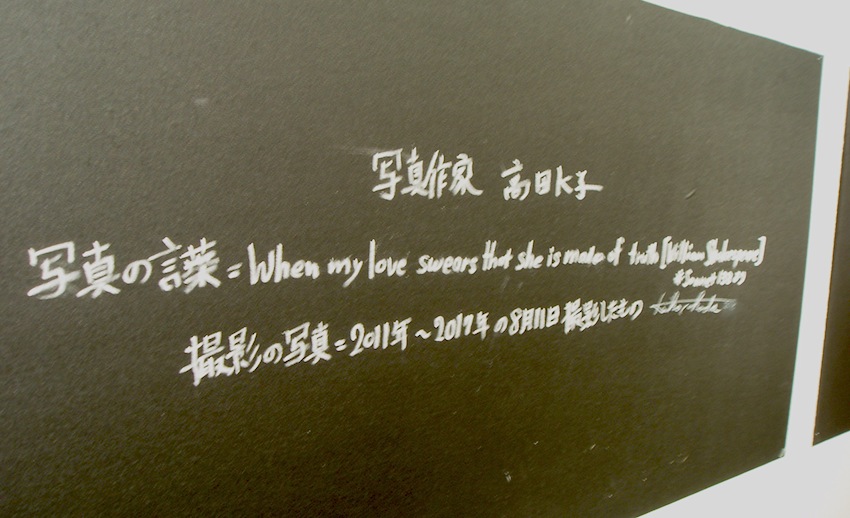 写真作家 高田K子
写真の言葉=When my love swears that she is made of truth [William Shakespeare]
撮影の写真=2011年~2017年の8月11日撮影したもの